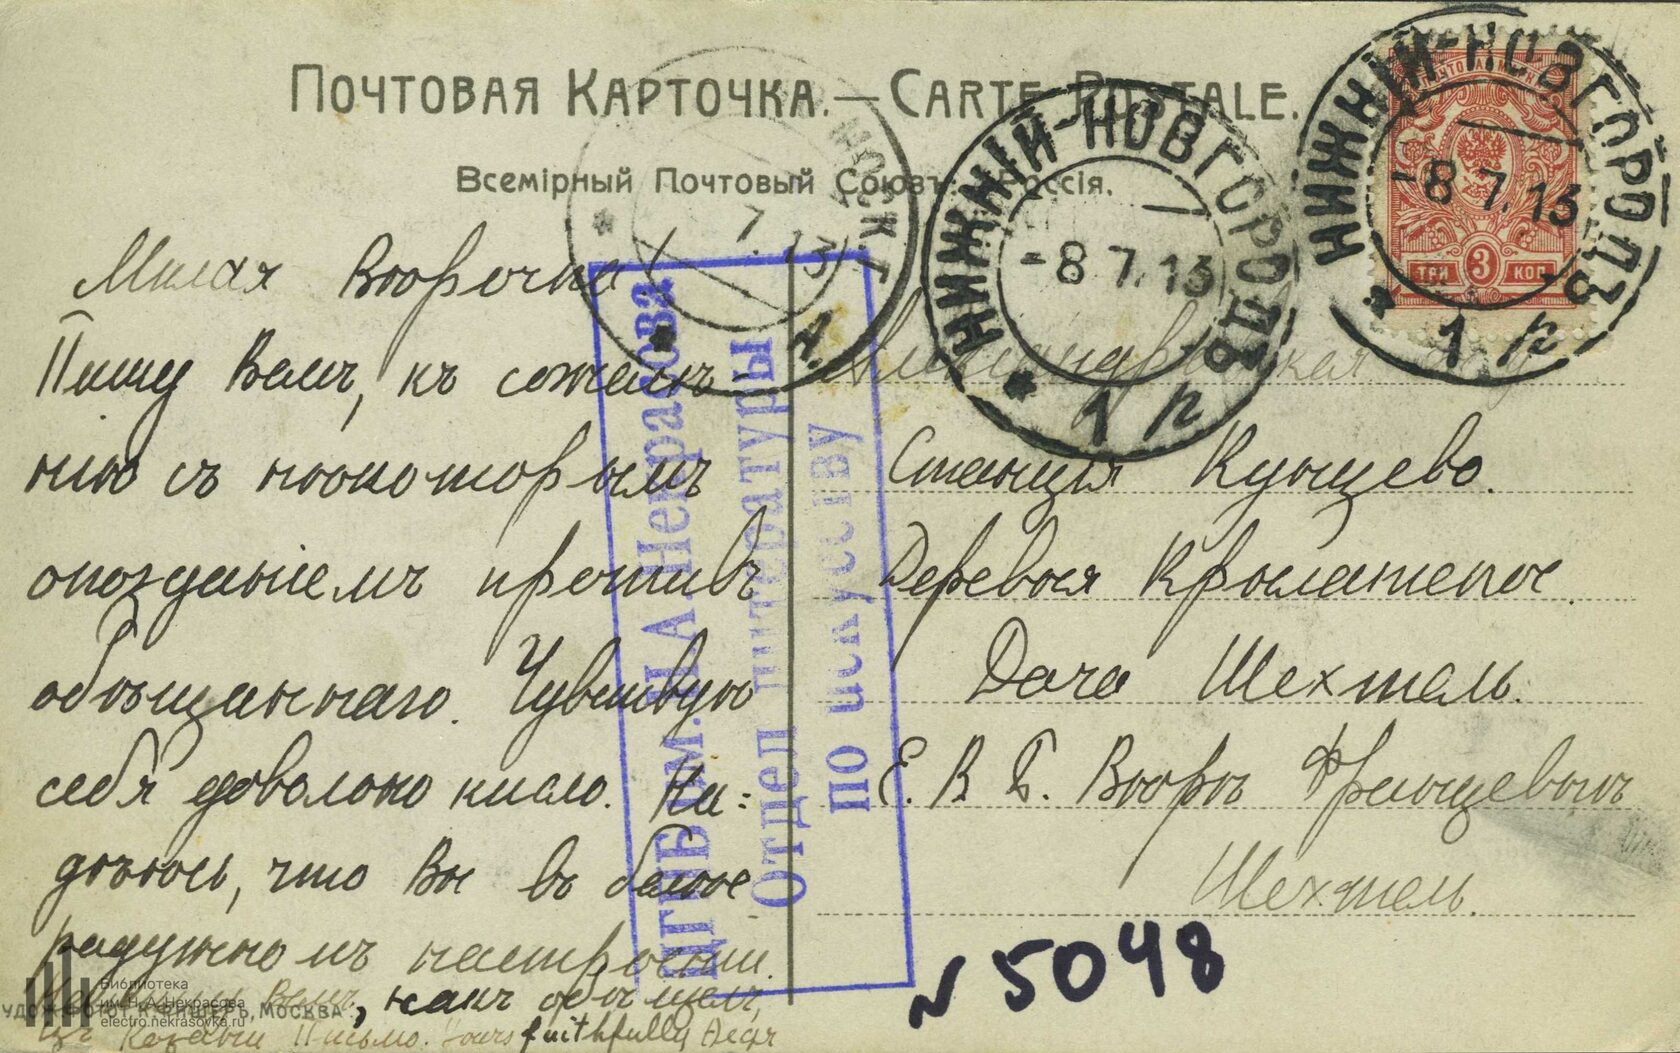 Почтовая Карточка. — Carte Postale.
Всемірный Почтовый Союзъ. Россія.
НИЖНІЙ-НОВГОРОДЪ
-8 7.13
* 1 п
НИЖНІЙ-НОВГОРОДЪ
-8 7.13
* 1 п
ТРИ 3 КОП
Милая Вѣрочка!
Пишу Вамъ, къ сожалѣ-
нію съ нѣкоторымъ
опозданіемъ противъ
обѣщаннаго. Чувствую
себя довольно кисло. На=
дѣюсь, что Вы въ болѣе
радужномъ настроеніи.
Вамъ, какъ обѣщалъ,
Письмо. Yours faithfully
Александровская
Станція Кунцево.
Деревня Крылатское.
Дача Шехтель.
Е. В. Б. Вѣрѣ Францевнѣ
Шехтель.
ЦГПБ им. Н.А. Некрасова
Отдел литературы
по искусству
N 5048
Библиотека
им. Н.А. Некрасова
electro.nekrasovka.ru
К. Фишеръ, Москва